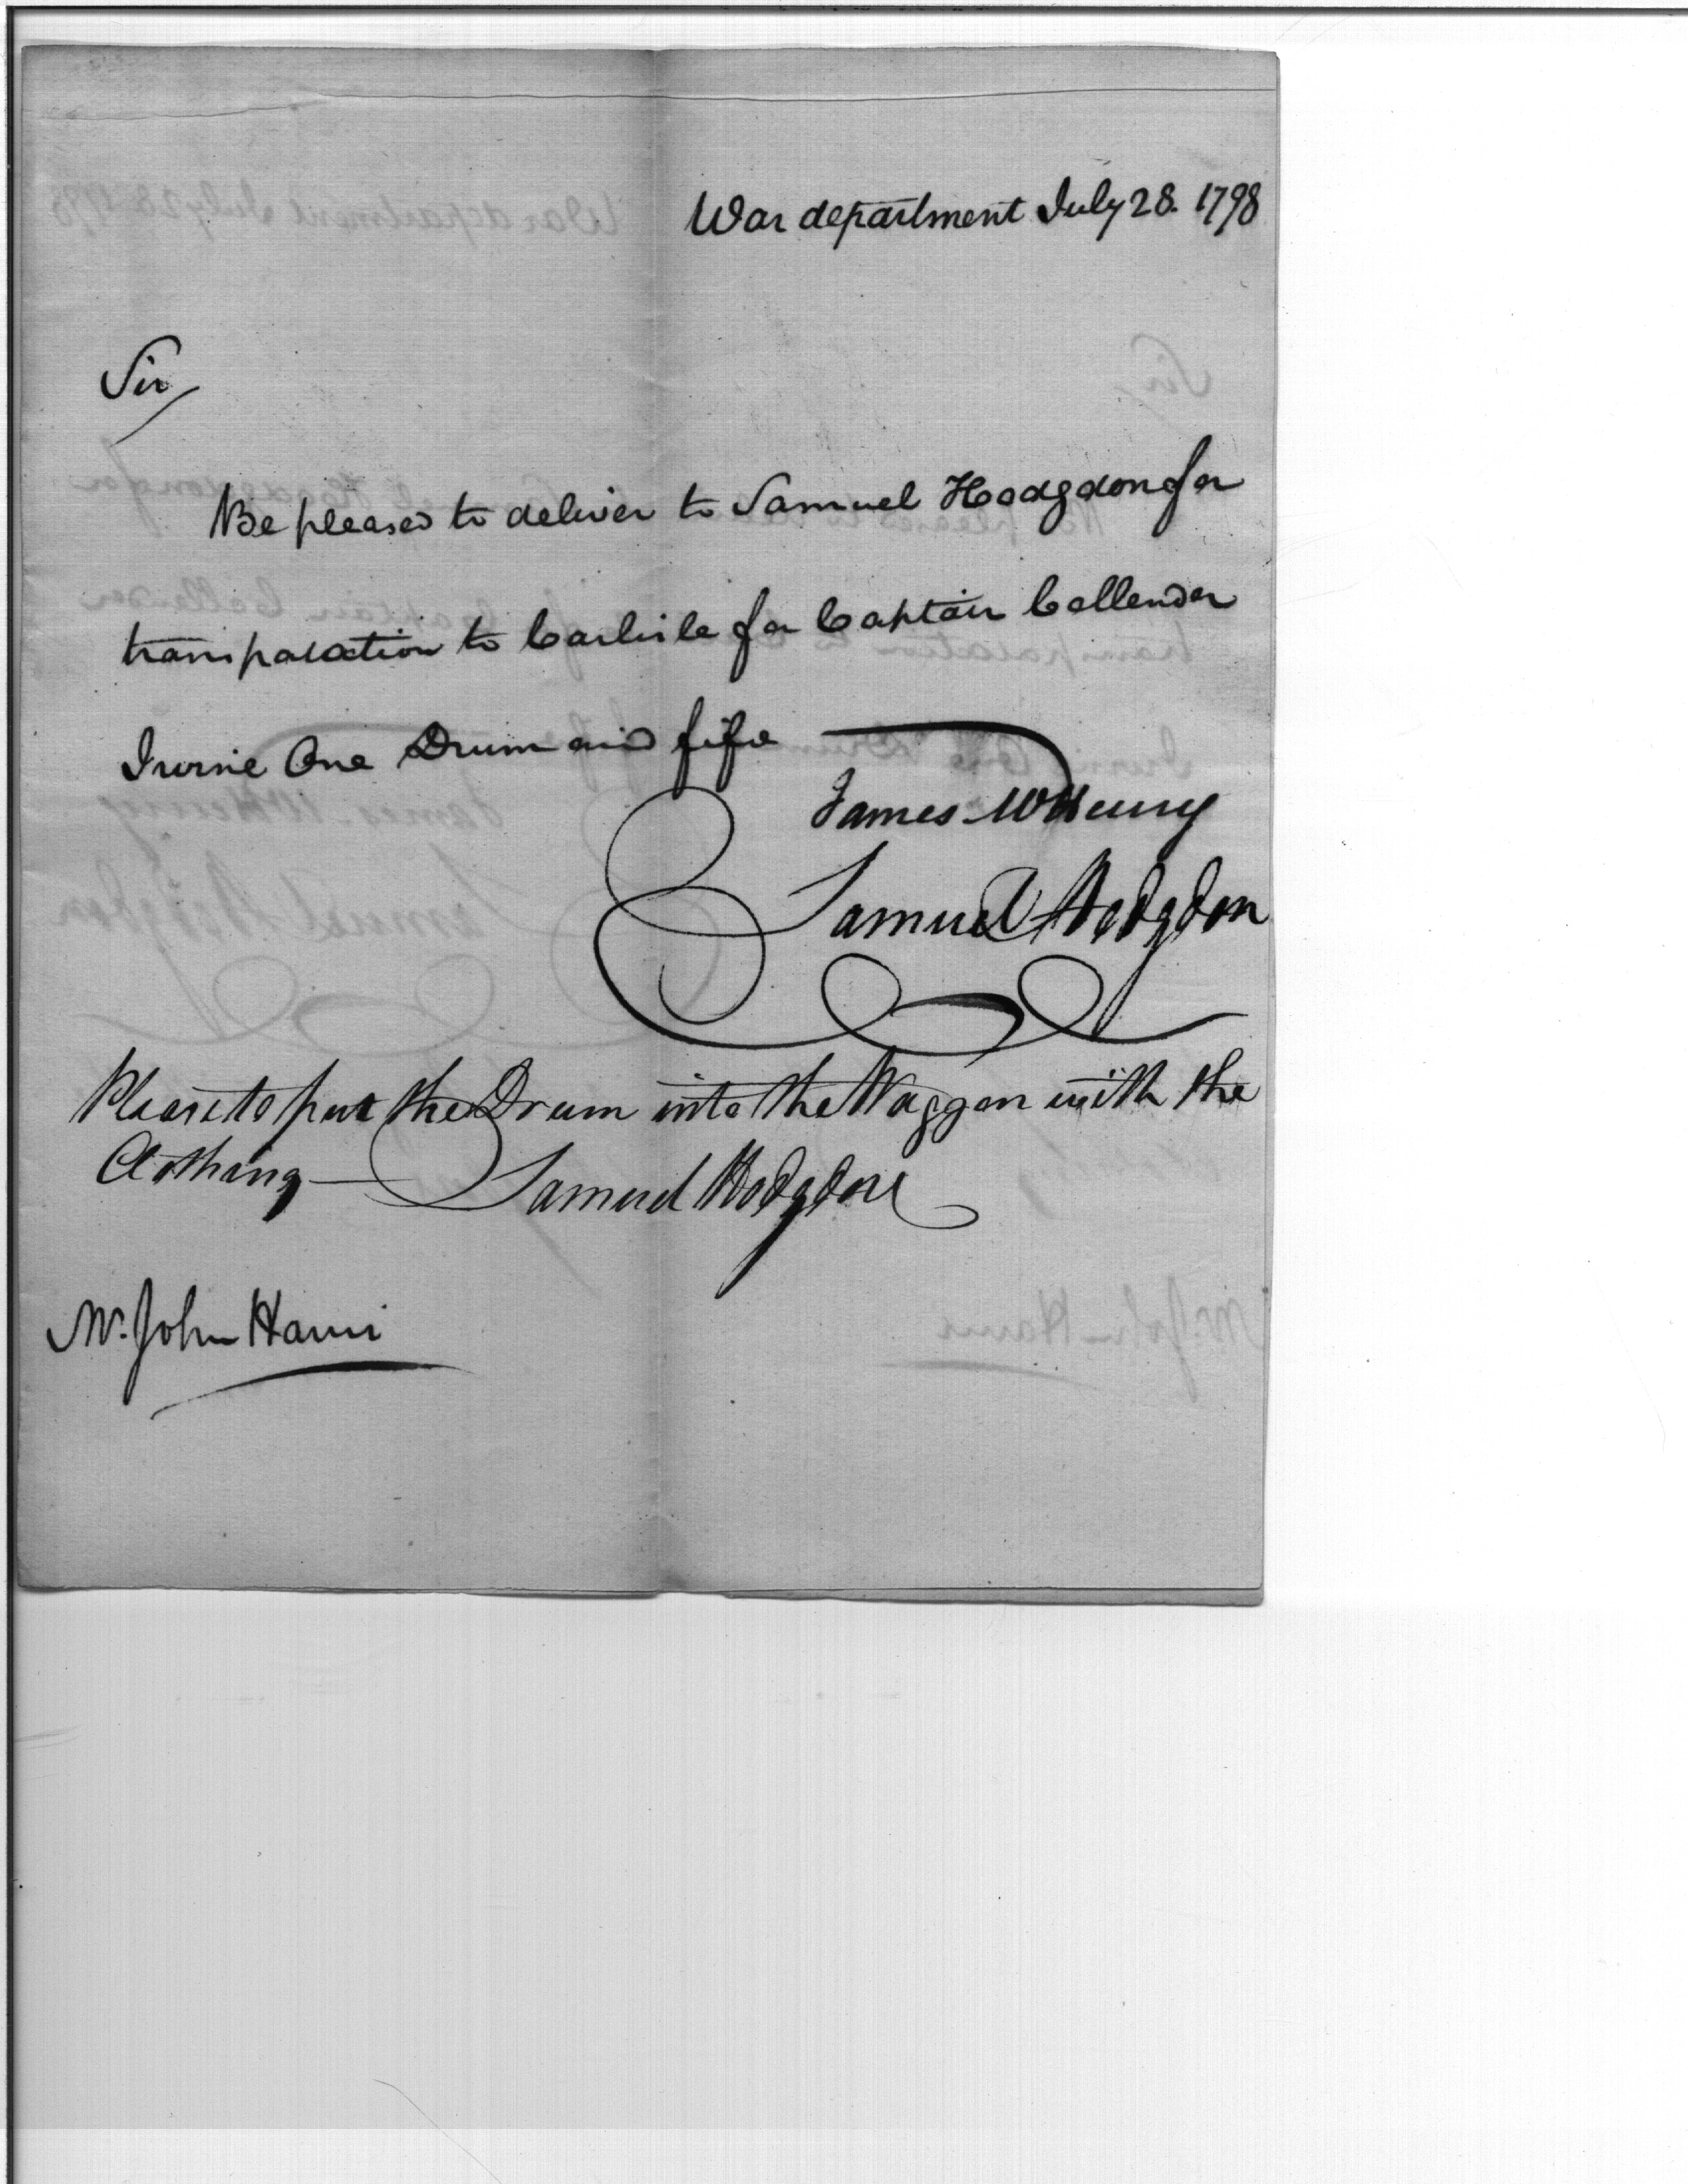 War department July 28. 1798
Sir
Be pleased to deliver to Samuel Hodgdon for
transporation to Carlisle for Captain Callender
Irvine One Drum and fife
James McHenry
Samuel Hodgdon
Please to put the Drum into the Waggon with the
Clothing — Samuel Hodgdon
Mr. John Harris